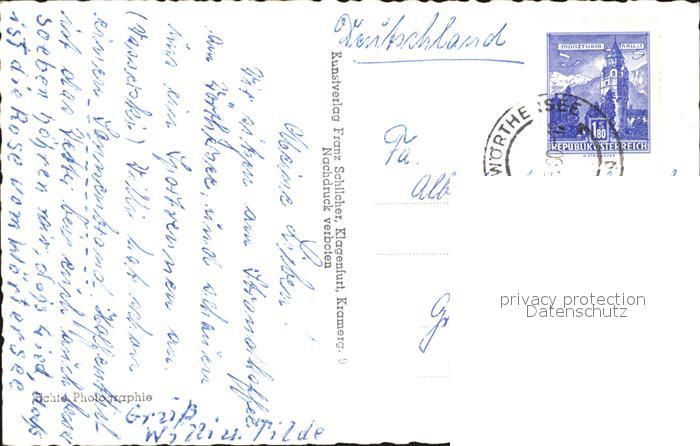 Deutschland
MÜNZTURM HALL I. T.
1.80
REPUBLIK ÖSTERREICH
WÖRTHERSEE
Fa.
Alb
G
privacy protection
Datenschutz
Kunstverlag Franz Schilcher, Klagenfurt, Kramerg. 9
Nachdruck verboten
Meine Lieben!
Wir sitzen am Strandkaffee
am Wörthersee, und schauen
uns ein Gartenen an.
Willi hat schon
einen Sonnenbrand. Hoffentlich
ist das Wetter bei euch auch
soeben hören wir, das Lied, das
ist die Rose vom Wörtersee
Gruß
Willi u. Tilde
Echte Photographie